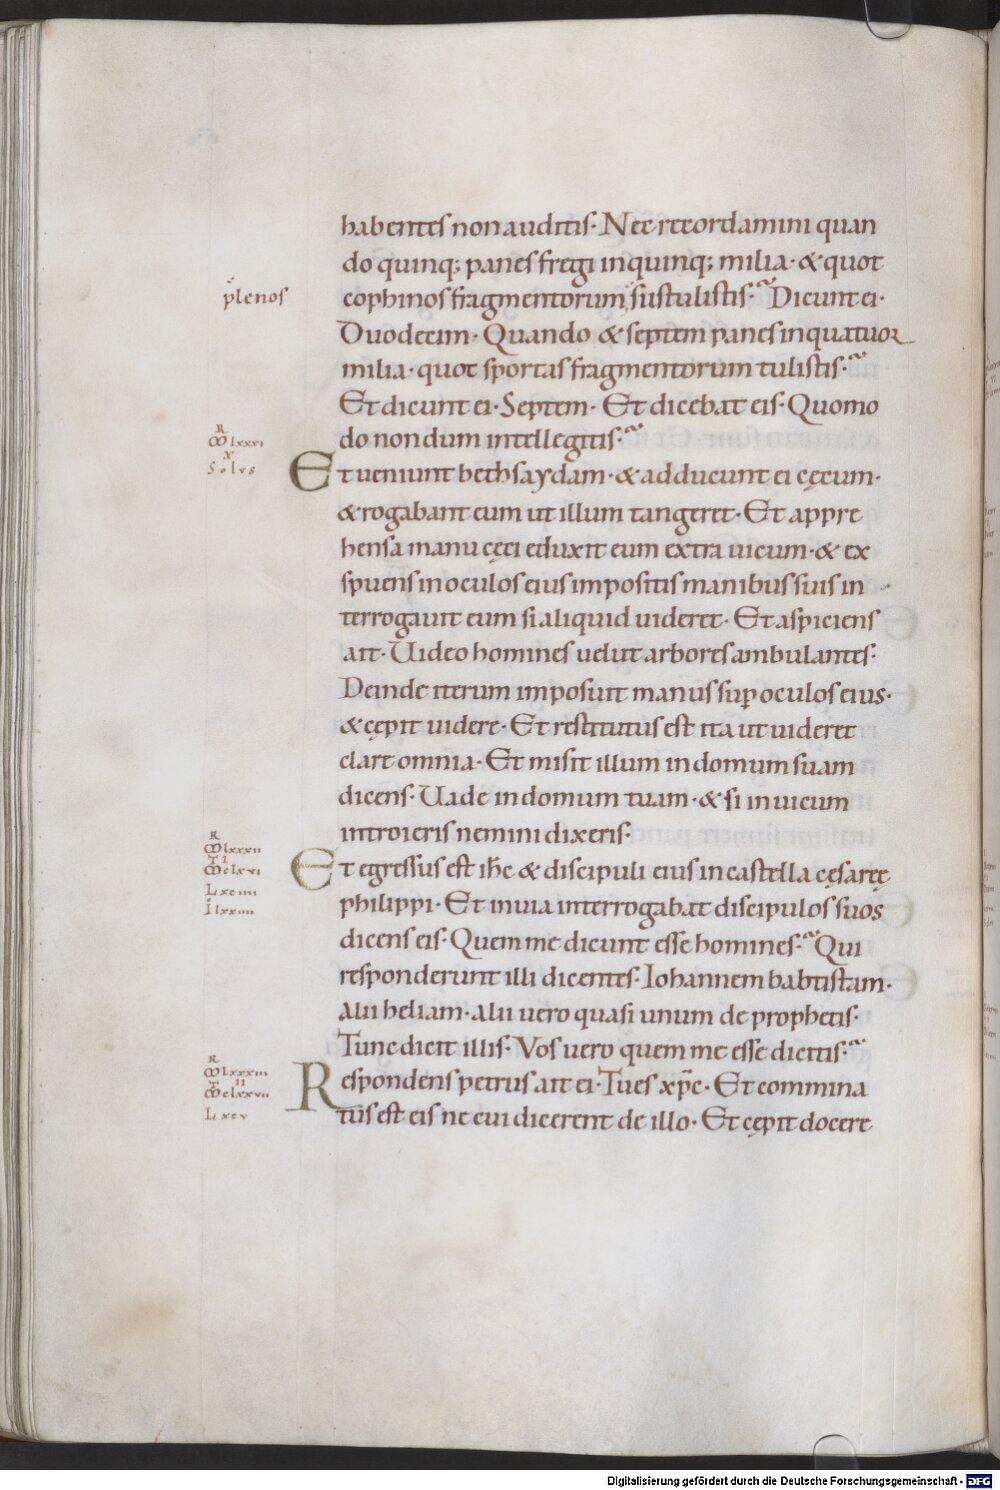 habentes non auditis· Nec recordamini quan
do quinq; panes fregi in quinq; milia· & quot
plenos
cophinos fragmentorum sustulistis· Dicunt ei·
Duodecim· Quando & septem panes in quatuor
milia· quot sportas fragmentorum tulistis·
Et dicunt ei· Septem· Et dicebat eis· Quomo
do nondum intellegitis·
R
M lxxxi
x
Solus
Et ueniunt bethsaydam· & adducunt ei cęcum·
& rogabant eum ut illum tangeret· Et appre
hensa manu cęci eduxit eum extra uicum· & ex
spuens in oculos eius impositis manibus suis in
terrogauit eum si aliquid uideret· Et aspiciens
ait· Uideo homines uelut arbores ambulantes·
Deinde iterum imposuit manus sup oculos eius·
& cępit uidere· Et restitutus est ita ut uideret
clare omnia· Et misit illum in domum suam
dicens· Uade in domum tuam· & si in uicum
introieris nemini dixeris·
R
M lxxxii
M clxvi
L xciiii
I lxxiiii
Et egressus est ihc & discipuli eius in castella cęsaręę
philippi· Et in uia interrogabat discipulos suos
dicens eis· Quem me dicunt esse homines· Qui
responderunt illi dicentes· Iohannem babtistam·
Alii heliam· alii uero quasi unum de prophetis·
Tunc dicit illis· Vos uero quem me esse dicitis·
R
M lxxxiii
II
M clxxvii
L xcv
Respondens petrus ait ei· Tu es xpc· Et commina
tus est eis ne cui dicerent de illo· Et cępit docere
Digitalisierung gefördert durch die Deutsche Forschungsgemeinschaft - DFG